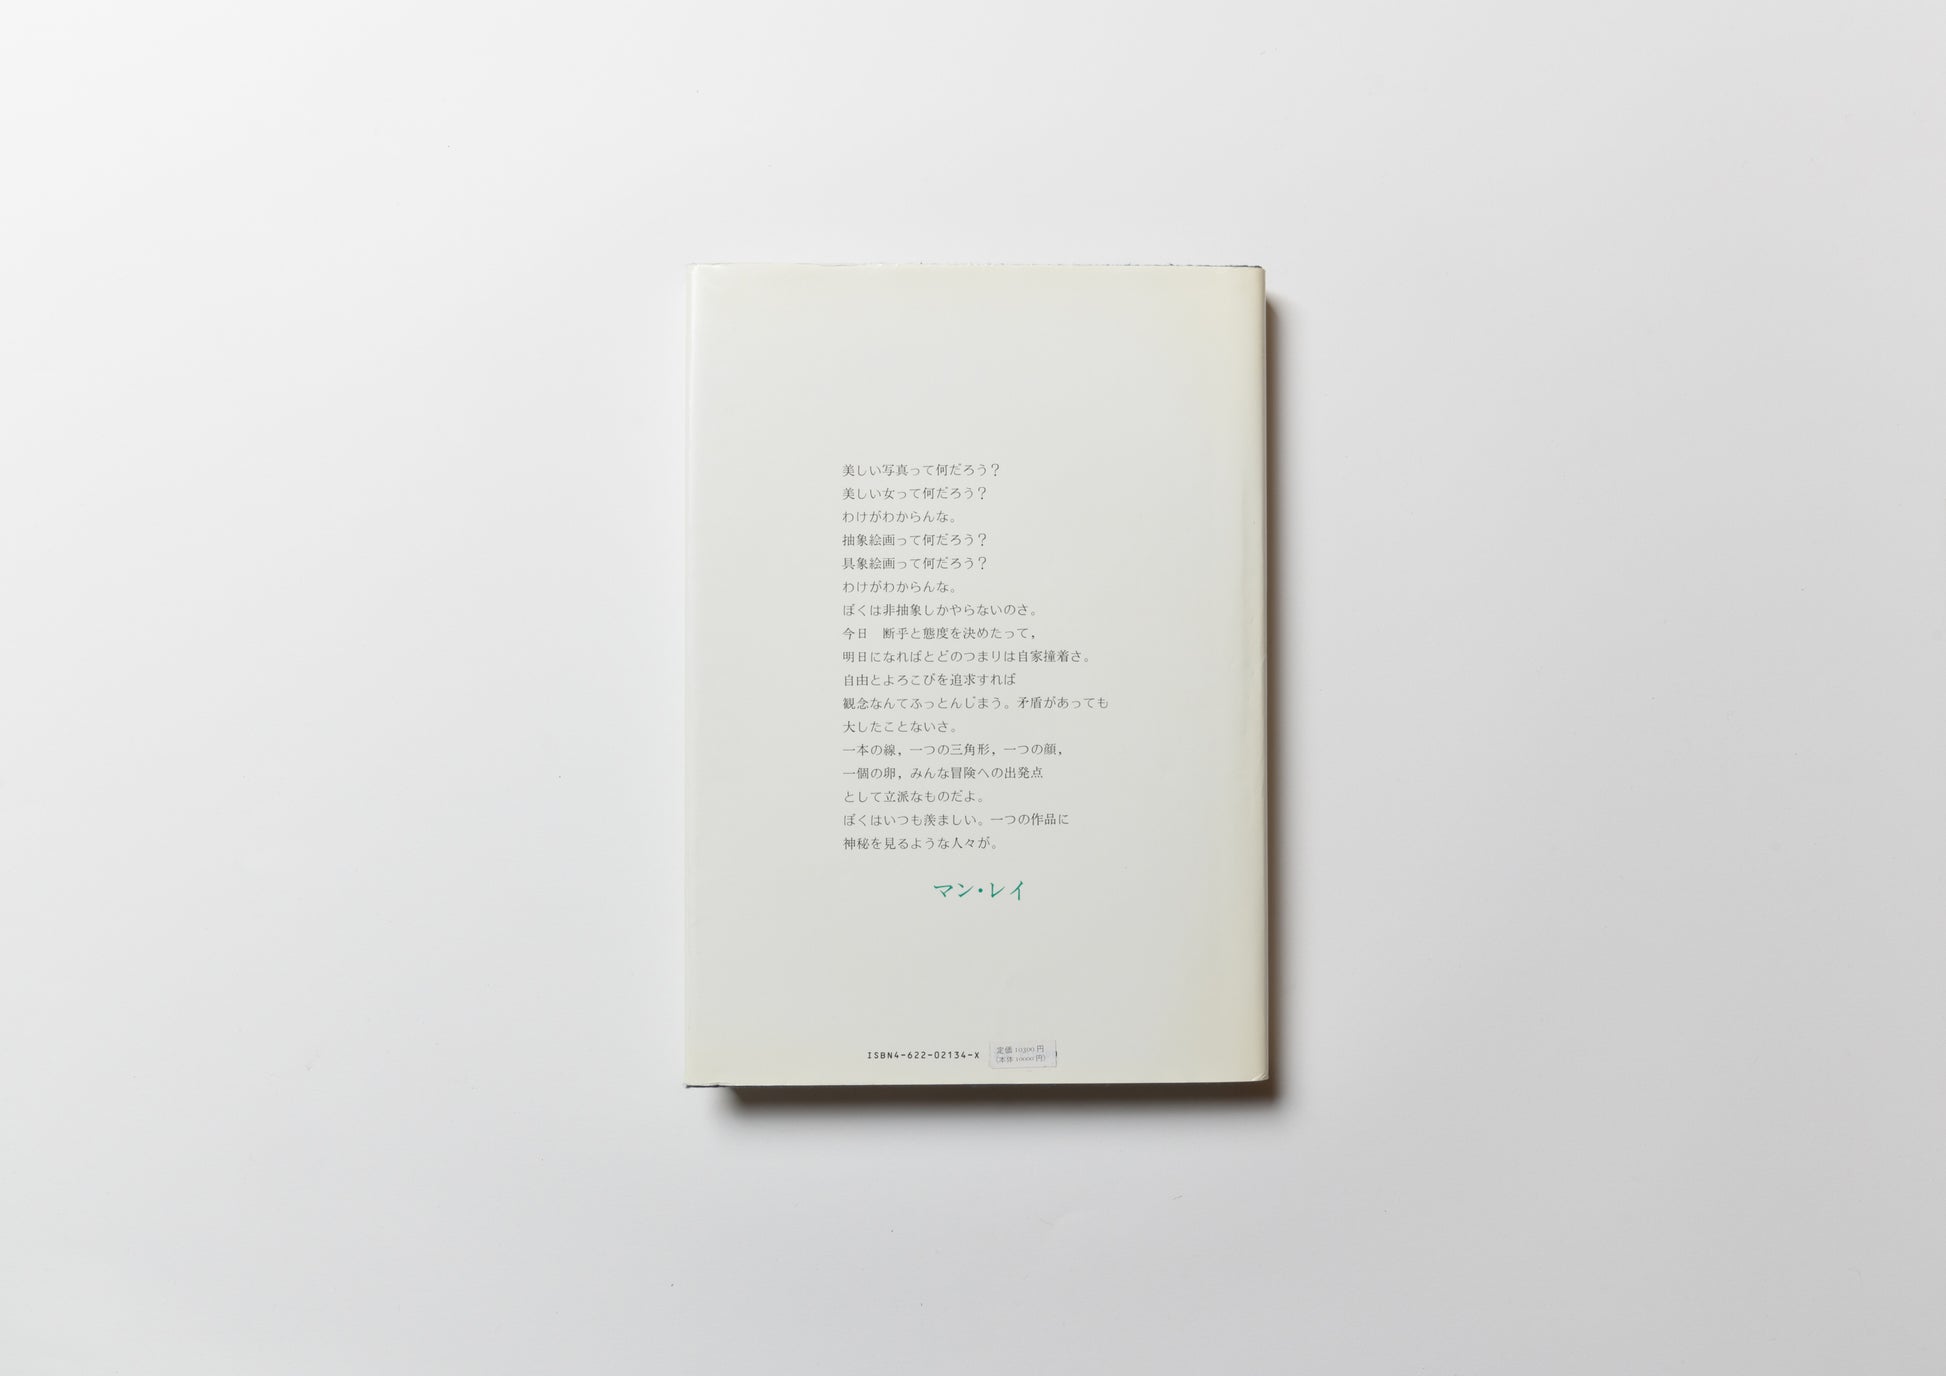 美しい写真って何だろう？
美しい女って何だろう？
わけがわからんな。
抽象絵画って何だろう？
具象絵画って何だろう？
わけがわからんな。
ぼくは非抽象しかやらないのさ。
今日　断乎と態度を決めたって，
明日になればとどのつまりは自家撞着さ。
自由とよろこびを追求すれば
観念なんてふっとんじまう。矛盾があっても
大したことないさ。
一本の線，一つの三角形，一つの顔，
一個の卵，みんな冒険への出発点
として立派なものだよ。
ぼくはいつも羨ましい。一つの作品に
神秘を見るような人々が。
マン・レイ
ISBN4-622-02134-X
定価 10300 円
(本体 10000 円)